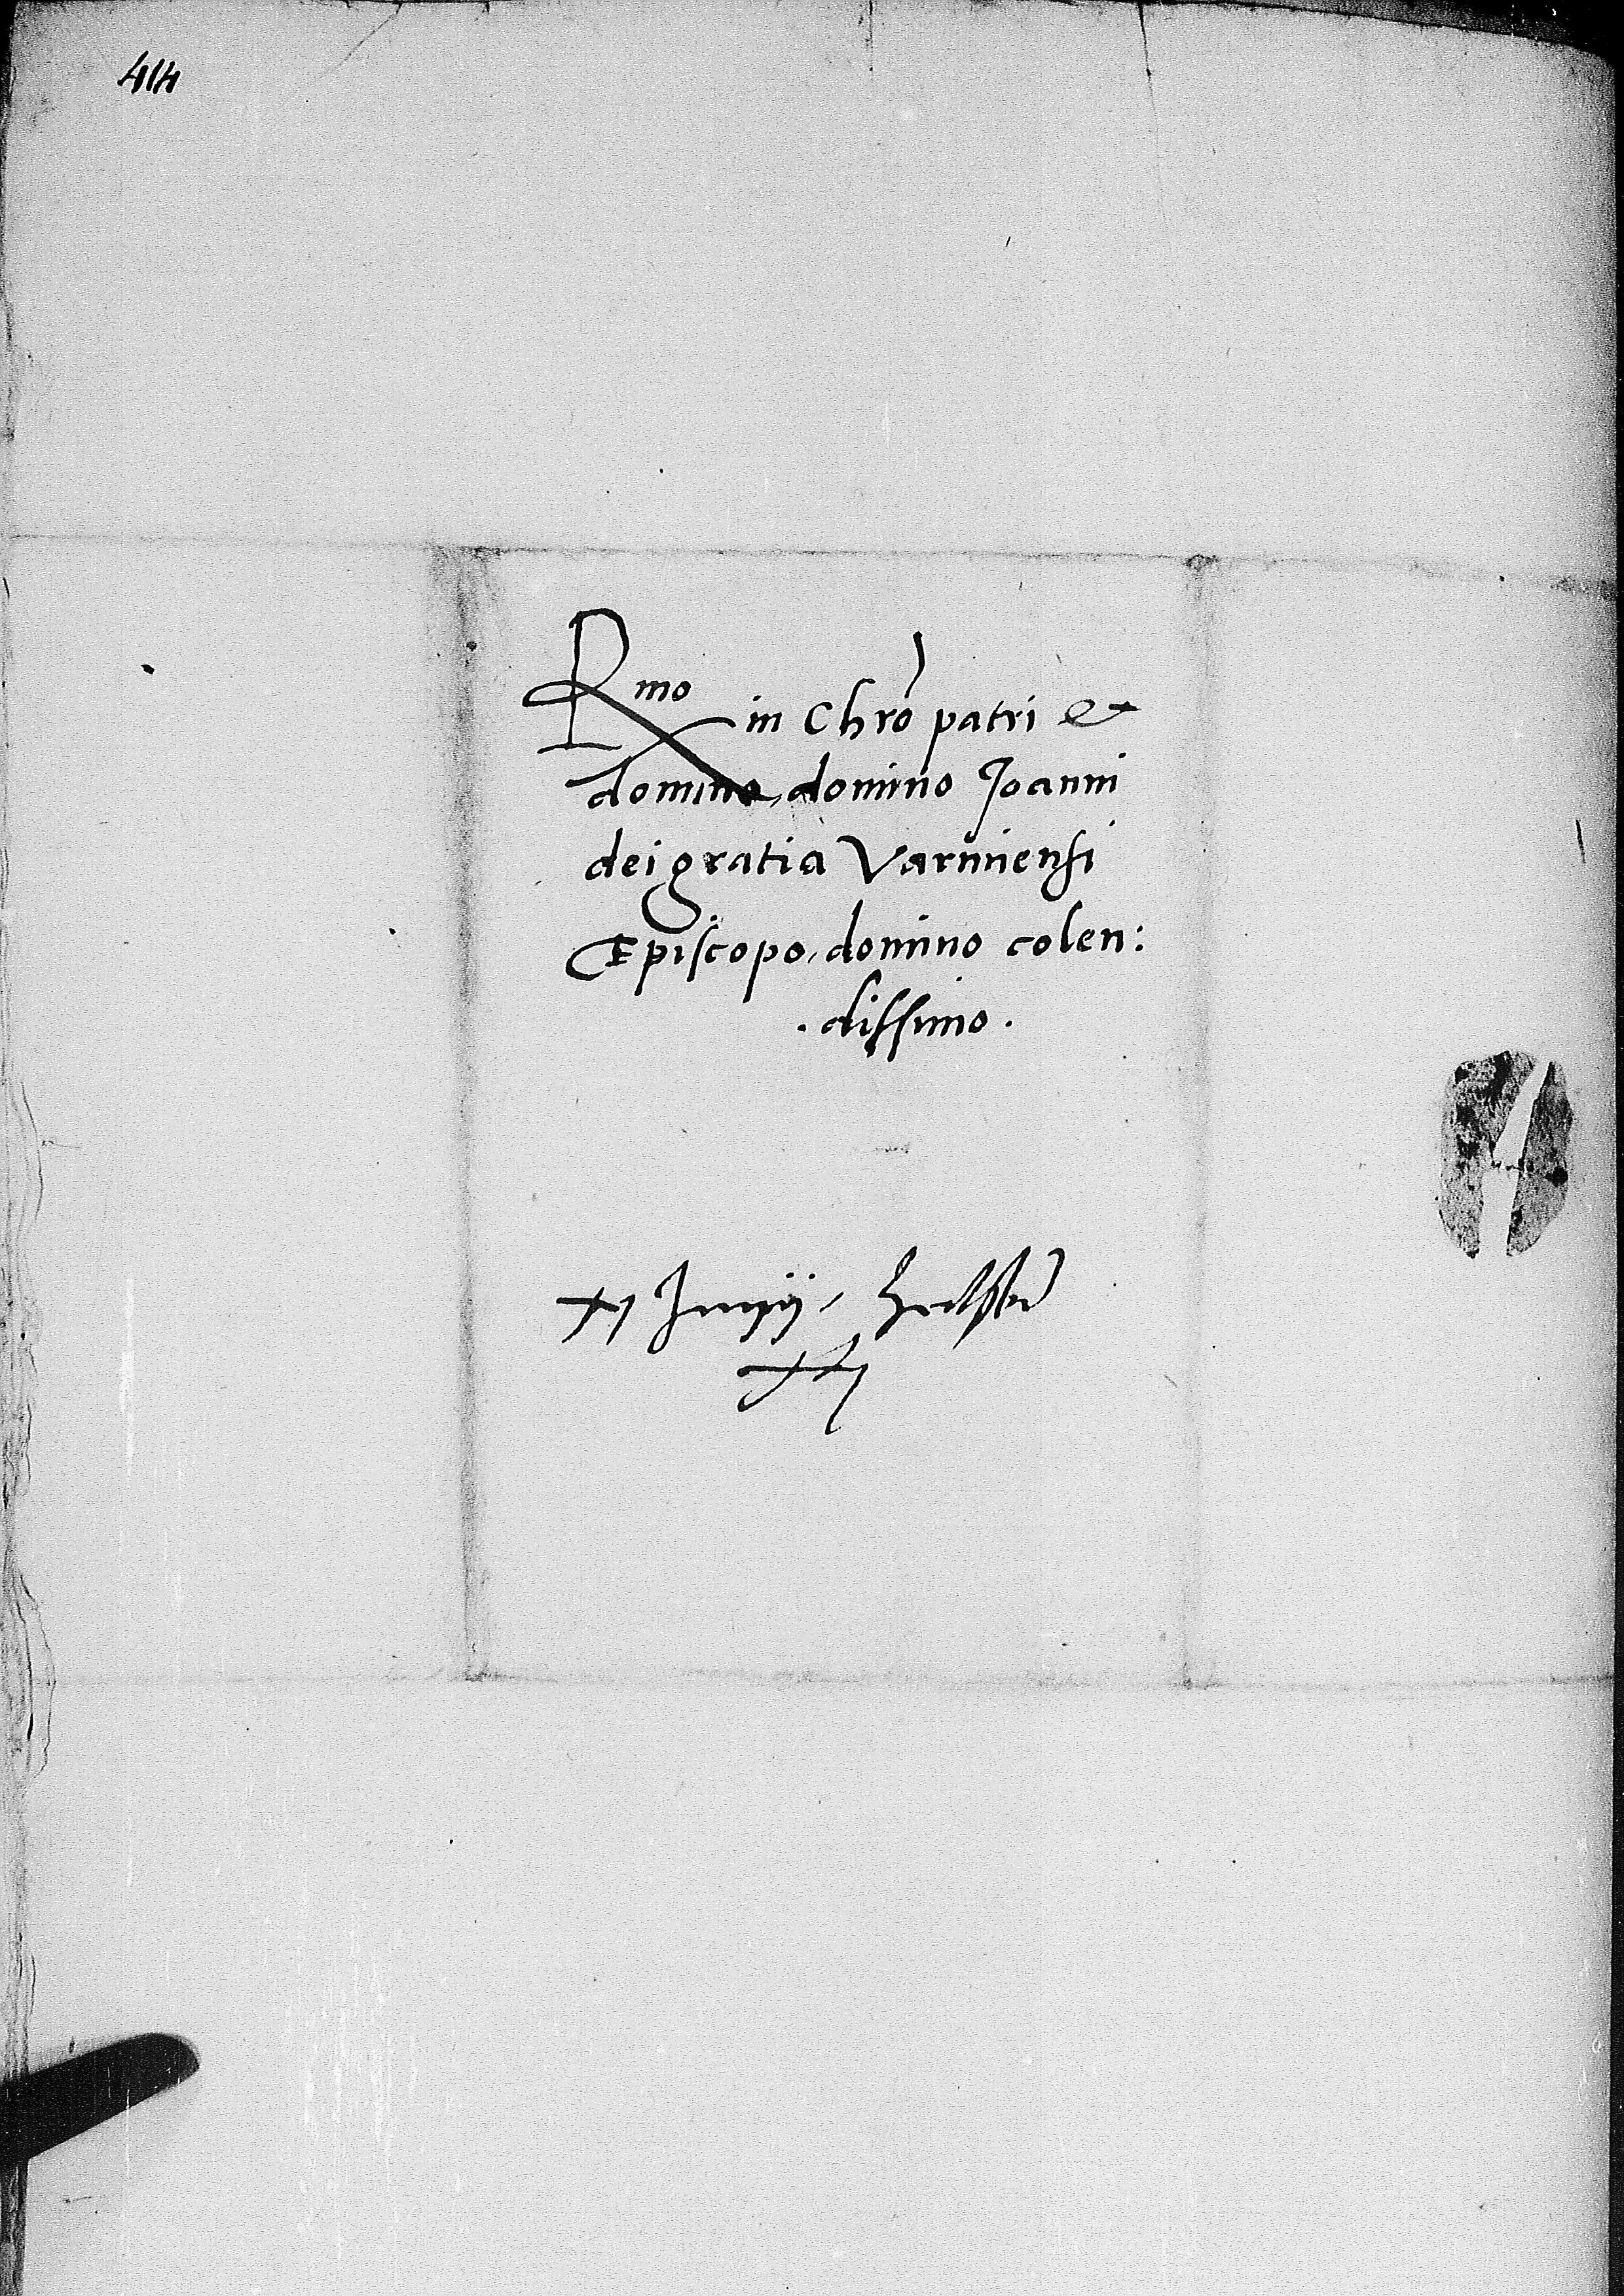 414
Rmo in Chro patri &
domino, domino Joanni
dei gratia Varmiensi
Episcopo, domino colen:
. dissimo .
Junij,